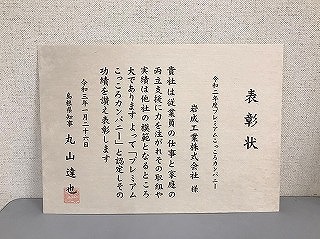 表彰状
令和二年度プレミアムこっころカンパニー
岩成工業株式会社 様
貴社は従業員の仕事と家庭の
両立支援に力を注がれその取組や
実績は他社の模範となるところ
大であります よって「プレミアム
こっころカンパニー」と認定しその
功績を讃え表彰します
令和三年一月二十六日
島根県知事 丸山達也